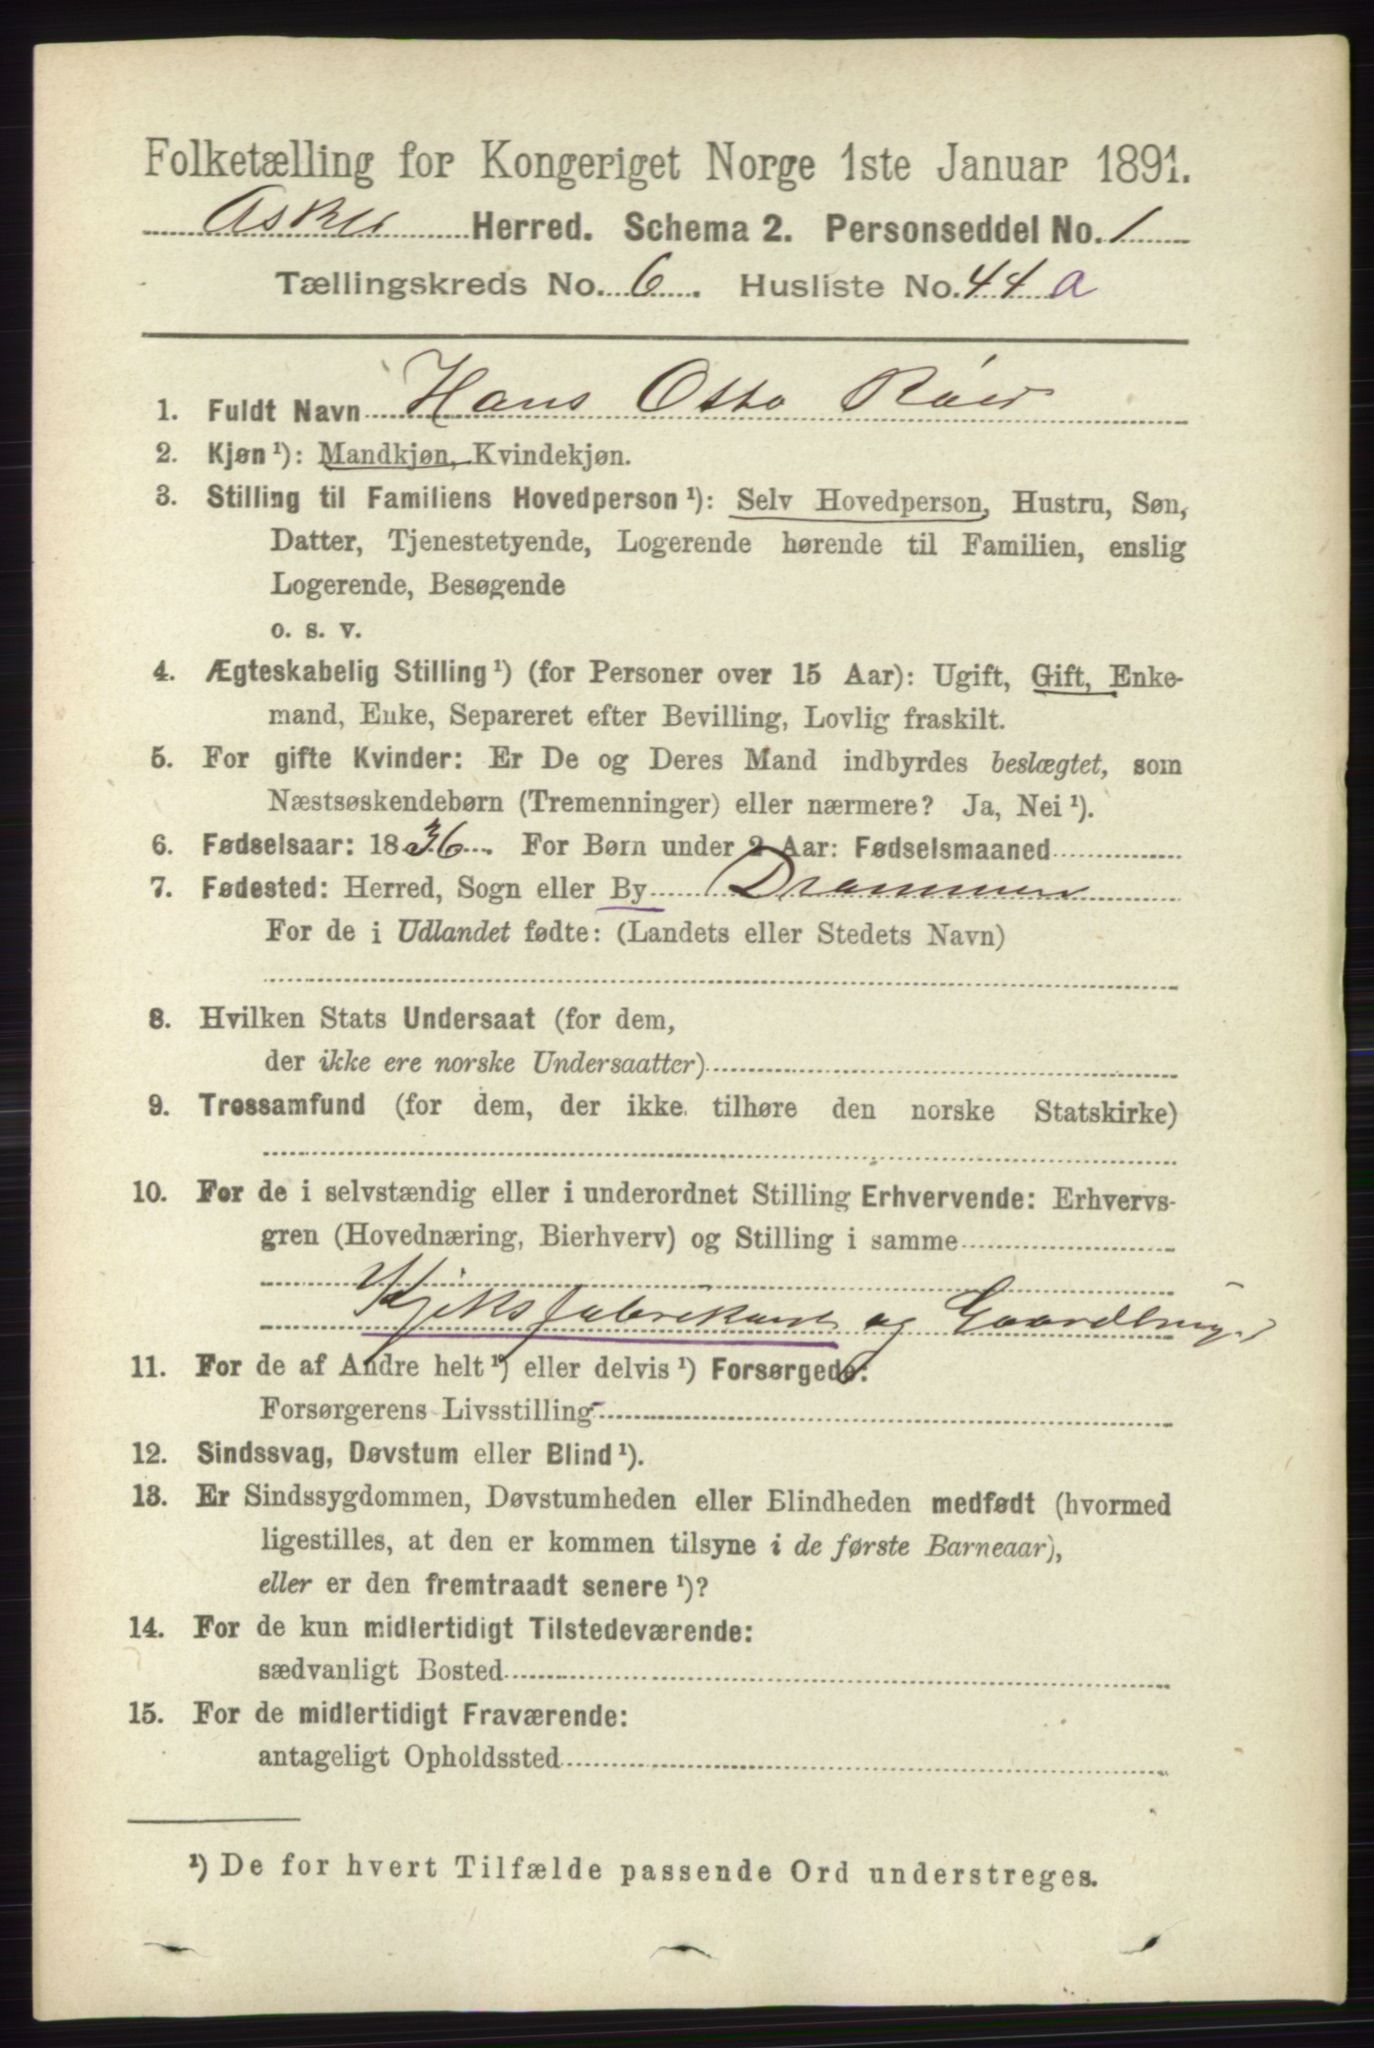 Folketælling for Kongeriget Norge 1ste Januar 1891.
Asker Herred. Schema 2. Personseddel No. 1
Tællingskreds No. 6. Husliste No. 44 a
1. Fuldt Navn Hans Otto Röer
2. Kjøn ¹): Mandkjøn, Kvindekjøn.
3. Stilling til Familiens Hovedperson ¹): Selv Hovedperson, Hustru, Søn,
Datter, Tjenestetyende, Logerende hørende til Familien, enslig
Logerende, Besøgende
o. s. v.
4. Ægteskabelig Stilling ¹) (for Personer over 15 Aar): Ugift, Gift, Enke-
mand, Enke, Separeret efter Bevilling, Lovlig fraskilt.
5. For gifte Kvinder: Er De og Deres Mand indbyrdes beslægtet, som
Næstsøskendebørn (Tremenninger) eller nærmere? Ja, Nei ¹).
6. Fødselsaar: 1836. For Børn under 2 Aar: Fødselsmaaned
7. Fødested: Herred, Sogn eller By Drammen
For de i Udlandet fødte: (Landets eller Stedets Navn)
8. Hvilken Stats Undersaat (for dem,
der ikke ere norske Undersaatter)
9. Trossamfund (for dem, der ikke tilhøre den norske Statskirke)
10. For de i selvstændig eller i underordnet Stilling Erhvervende: Erhvervs-
gren (Hovednæring, Bierhverv) og Stilling i samme
Kjeksfabrikant og Gaardbruger
11. For de af Andre helt ¹) eller delvis ¹) Forsørgede:
Forsørgerens Livsstilling
12. Sindssvag, Døvstum eller Blind ¹).
13. Er Sindssygdommen, Døvstumheden eller Blindheden medfødt (hvormed
ligestilles, at den er kommen tilsyne i de første Barneaar),
eller er den fremtraadt senere ¹)?
14. For de kun midlertidigt Tilstedeværende:
sædvanligt Bosted
15. For de midlertidigt Fraværende:
antageligt Opholdssted
¹) De for hvert Tilfælde passende Ord understreges.